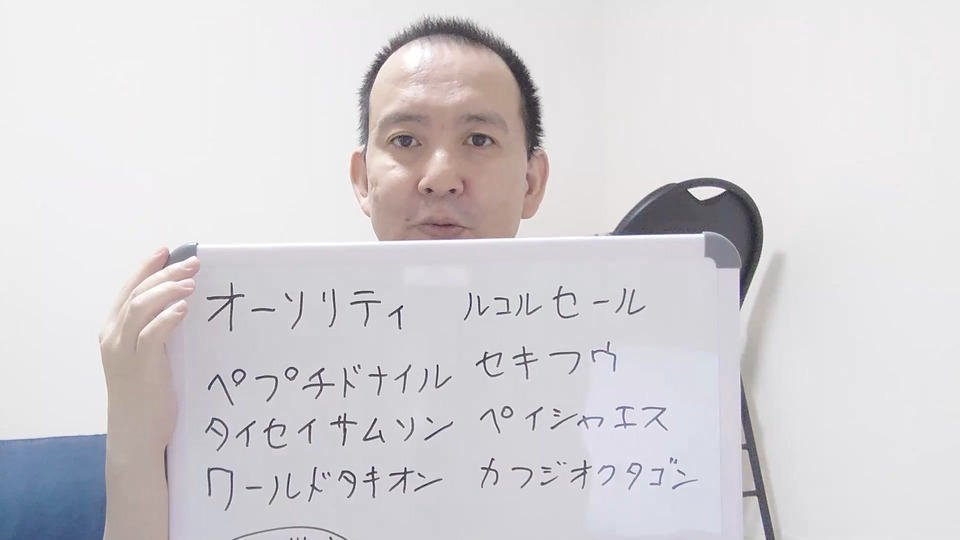 オーソリティ ルコルセール
ペプチドナイル セキフウ
タイセイサムソン ペイシャエス
ワールドタキオン カフジオクタゴン